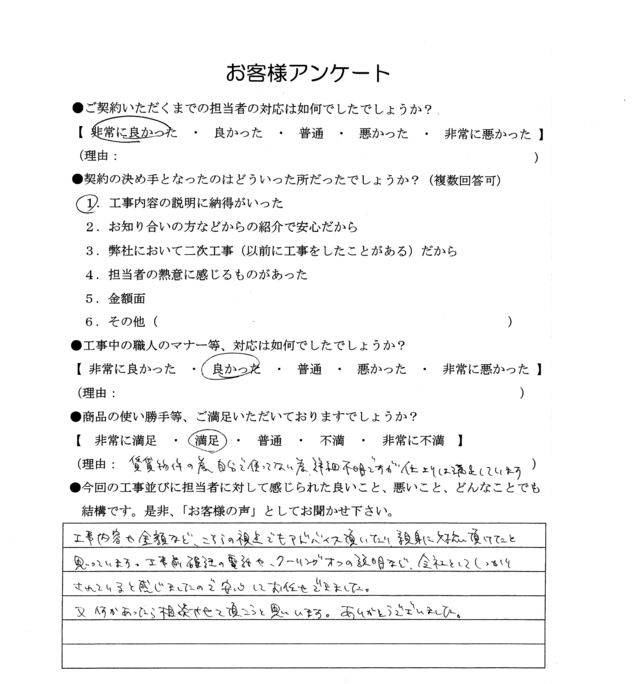 お客様アンケート
●ご契約いただくまでの担当者の対応は如何でしたでしょうか?
【 非常に良かった ・ 良かった ・ 普通 ・ 悪かった ・ 非常に悪かった 】
(理由: )
●契約の決め手となったのはどういった所だったでしょうか?(複数回答可)
1.工事内容の説明に納得がいった
2.お知り合いの方などからの紹介で安心だから
3.弊社において二次工事(以前に工事をしたことがある)だから
4.担当者の熱意に感じるものがあった
5.金額面
6.その他( )
●工事中の職人のマナー等、対応は如何でしたでしょうか?
【 非常に良かった ・ 良かった ・ 普通 ・ 悪かった ・ 非常に悪かった 】
(理由: )
●商品の使い勝手等、ご満足いただいておりますでしょうか?
【 非常に満足 ・ 満足 ・ 普通 ・ 不満 ・ 非常に不満 】
(理由: 賃貸物件の為、自分で使ってない為、詳細不明ですが仕上りは満足しています )
●今回の工事並びに担当者に対して感じられた良いこと、悪いこと、どんなことでも
結構です。是非、「お客様の声」としてお聞かせ下さい。
工事内容や金額など、こちらの視点でもアドバイス頂いたり親身に対応頂けたと
思っています。工事前確認の電話や、クーリングオフの説明など、会社としてしっかり
されていると感じましたので安心してお任せできました。
又何かあったら相談させて頂こうと思います。ありがとうございました。